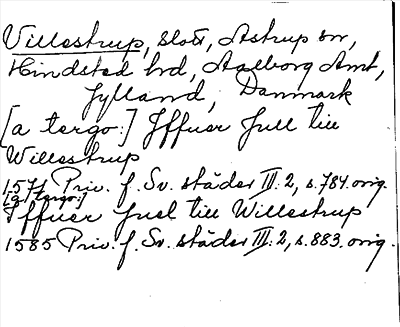 Villestrup, slott, Astrup sn,
Hindsted hd, Aalborg Amt,
Jylland, Danmark
[a tergo:] Iffuer Jull till
Willestrup
1571 Priv. f. Sv. städer III:2, s.784. orig.
[a tergo:]
Iffuer Juel till Willestrup
1585 Priv. f. Sv. städer III:2, s.883. orig.